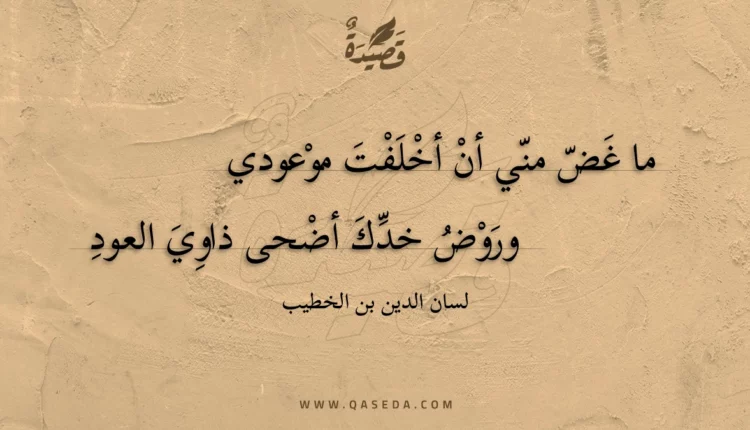 قَصِيْدَةٌ
ما غَضّ منّي أنْ أخْلَفْتَ موْعودي
ورَوْضُ خدِّكَ أضْحى ذاوِيَ العودِ
لسان الدين بن الخطيب
WWW.QASEDA.COM